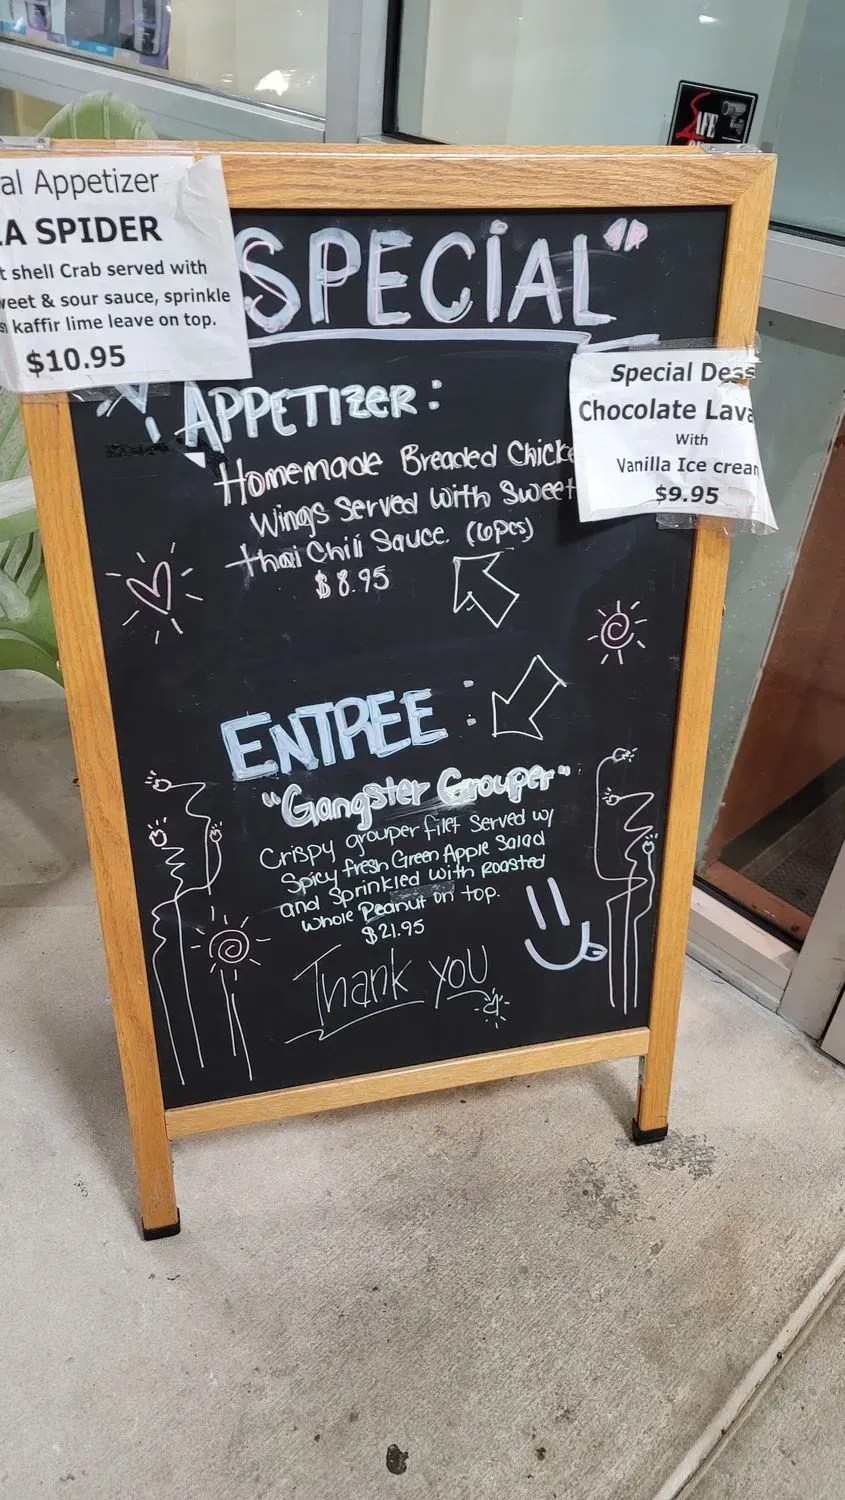 al Appetizer
A SPIDER
t shell Crab served with
weet & sour sauce, sprinkle
kaffir lime leave on top.
$10.95
SPECIAL"
Special Dess
Chocolate Lava
With
Vanilla Ice cream
$9.95
APPETIZER:
Homemade Breaded Chicke
Wings Served with Sweet
thai Chili Sauce. (6pcs)
$8.95
ENTREE:
"Gangster Grouper"
Crispy grouper filet Served w/
Spicy fresh Green Apple Salad
and Sprinkled with roasted
whole Peanut on top.
$21.95
Thank you
SAFE